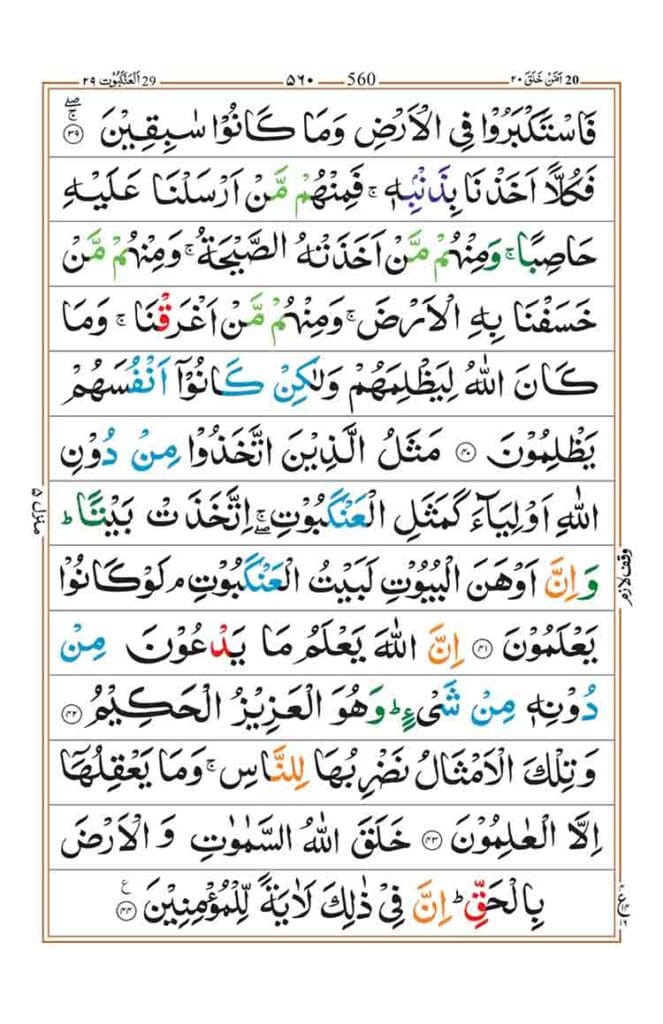 ٢٩ اَلْعَنْكَبُوْت 29
٥٦٠ 560
٢٠ اَمَّنْ خَلَقَ 20
فَاسْتَكْبَرُوْا فِی الْاَرْضِ وَمَا كَانُوْا سٰبِقِیْنَ ۝٣٩
فَكُلًّا اَخَذْنَا بِذَنْۢبِهٖ ۚ فَمِنْهُمْ مَّنْ اَرْسَلْنَا عَلَیْهِ
حَاصِبًا ۚ وَمِنْهُمْ مَّنْ اَخَذَتْهُ الصَّیْحَةُ ۚ وَمِنْهُمْ مَّنْ
خَسَفْنَا بِهِ الْاَرْضَ ۚ وَمِنْهُمْ مَّنْ اَغْرَقْنَا ۚ وَمَا
كَانَ اللّٰهُ لِیَظْلِمَهُمْ وَلٰكِنْ كَانُوْۤا اَنْفُسَهُمْ
یَظْلِمُوْنَ ۝٤٠ مَثَلُ الَّذِیْنَ اتَّخَذُوْا مِنْ دُوْنِ
اللّٰهِ اَوْلِیَآءَ كَمَثَلِ الْعَنْكَبُوْتِ ۖۚ اِتَّخَذَتْ بَیْتًا ؕ
وَاِنَّ اَوْهَنَ الْبُیُوْتِ لَبَیْتُ الْعَنْكَبُوْتِ ۘ لَوْ كَانُوْا
یَعْلَمُوْنَ ۝٤١ اِنَّ اللّٰهَ یَعْلَمُ مَا یَدْعُوْنَ مِنْ
دُوْنِهٖ مِنْ شَیْءٍ ؕ وَهُوَ الْعَزِیْزُ الْحَكِیْمُ ۝٤٢
وَتِلْكَ الْاَمْثَالُ نَضْرِبُهَا لِلنَّاسِ ۚ وَمَا یَعْقِلُهَاۤ
اِلَّا الْعٰلِمُوْنَ ۝٤٣ خَلَقَ اللّٰهُ السَّمٰوٰتِ وَالْاَرْضَ
بِالْحَقِّ ؕ اِنَّ فِیْ ذٰلِكَ لَاٰیَةً لِّلْمُؤْمِنِیْنَ ۝٤٤
منزل ٥
وقف لازم
ع